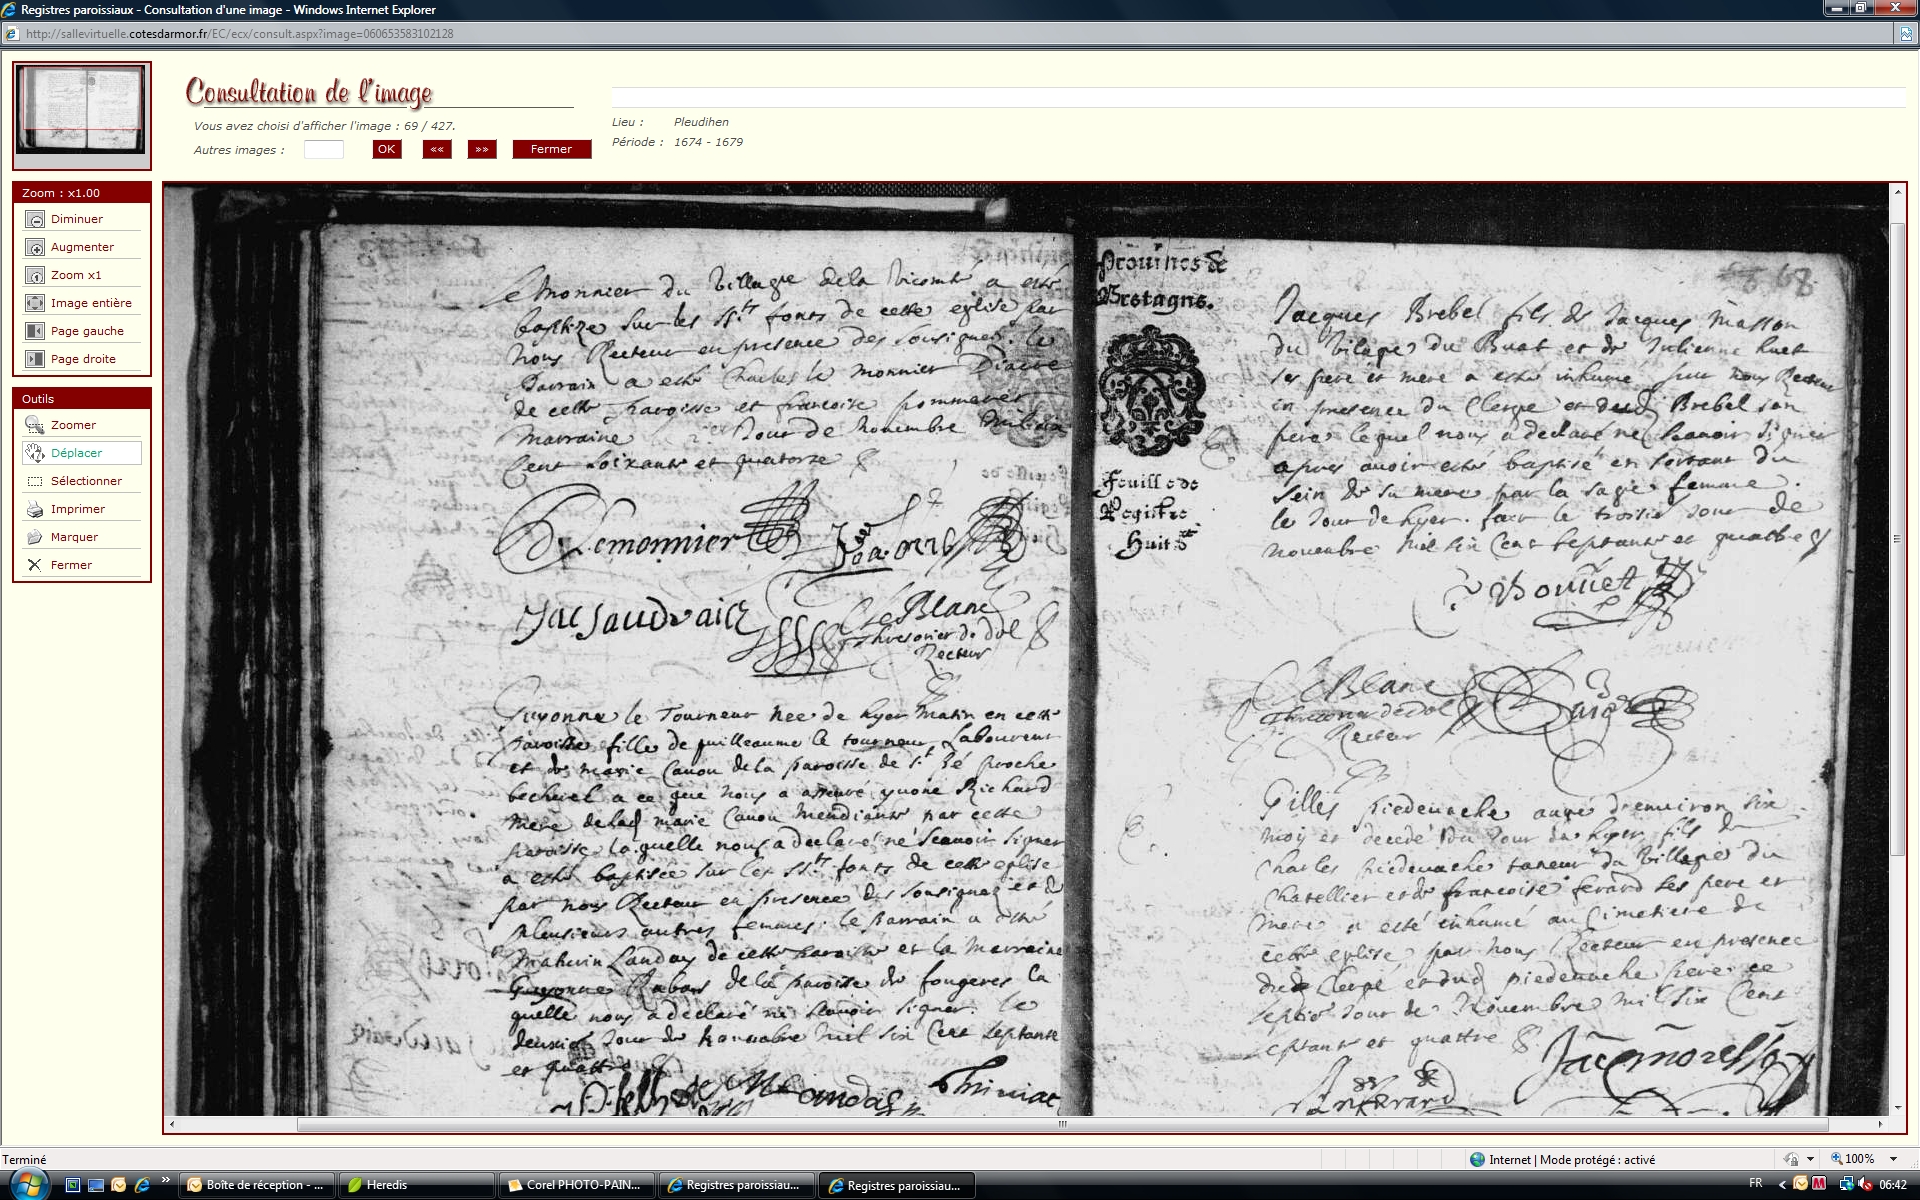 Registres paroissiaux - Consultation d'une image - Windows Internet Explorer
http://sallevirtuelle.cotesdarmor.fr/EC/ecx/consult.aspx?image=060653583102128
Consultation de l'image
Vous avez choisi d'afficher l'image : 69 / 427.
Autres images :
OK
««
»»
Fermer
Lieu : Pleudihen
Période : 1674 - 1679
Zoom : x1.00
Diminuer
Augmenter
Zoom x1
Image entière
Page gauche
Page droite
Outils
Zoomer
Déplacer
Sélectionner
Imprimer
Marquer
Fermer
le Monnier du Village de la Vicomté a esté
baptizé sur les SSts fonts de cette eglise par
nous Recteur en presence des sousignez. le
Parrain a esté Charles le monnier Diacre
de cette paroisse et francoise pommeret
marraine jour de Novembre mil six
Cent soixante et quatorze
Lemonnier
Jac Jaudrain
C Le Blanc
thresorier de Dol
Recteur
Guyonne le Tourneur nee de hyer matin en cette
paroisse fille de guilleaume le tourneur Laboureur
et de marie Canou de la paroisse de St
becherel a ce que nous a asseuré yvone Richard
mere de lad marie Canou mendiante par cette
paroisse la quelle nous a declaré ne scauoir signer
a esté baptisée sur les SSts fonts de cette eglise
par nous Recteur en presence des sousignez et de
plusieurs autres femmes. le parrain a esté
Mahurin Landas de cette paroisse et la Marraine
Guyonne Rabas de la paroisse de fougeres la
quelle nous a declaré ne scauoir signer. le
deusie jour de nouuabre mil six Cent septante
et quattre
Prouinces de
Bretagne.
Feuille de
Registre
Huit ds
68
Jacques Brebel fils de Jacques masson
du Vilage du Buat et de Julienne huet
ses pere et mere a esté inhumé par nous Recteur
in presence du Clergé et dud Brebel son
pere lequel nous a declaré ne scauoir signer
apres auoir esté baptisé en sortant du
sein de sa mere par la sage femme.
le jour de hyer. faict le troisie jour de
nouuabre mil six Cent septante et quattre
C Le Blanc
thresorier de Dol
Recteur
Gilles piedeuache augé denuiron six
mois et decedé du jour de hyer fils de
Charles piedeuache taneur du Village du
Chatellier et de francoise ferard ses pere et
mere a esté inhumé au Cimetiere de
cette eglise par nous Recteur en presence
du Clergé et dud piedeuache pere ce
septie jour de Novembre mil six Cent
septante et quattre
Terminé
Internet | Mode protégé : activé
100%
Boîte de réception - ...
Heredis
Corel PHOTO-PAIN...
Registres paroissiau...
Registres paroissiau...
FR
06:42